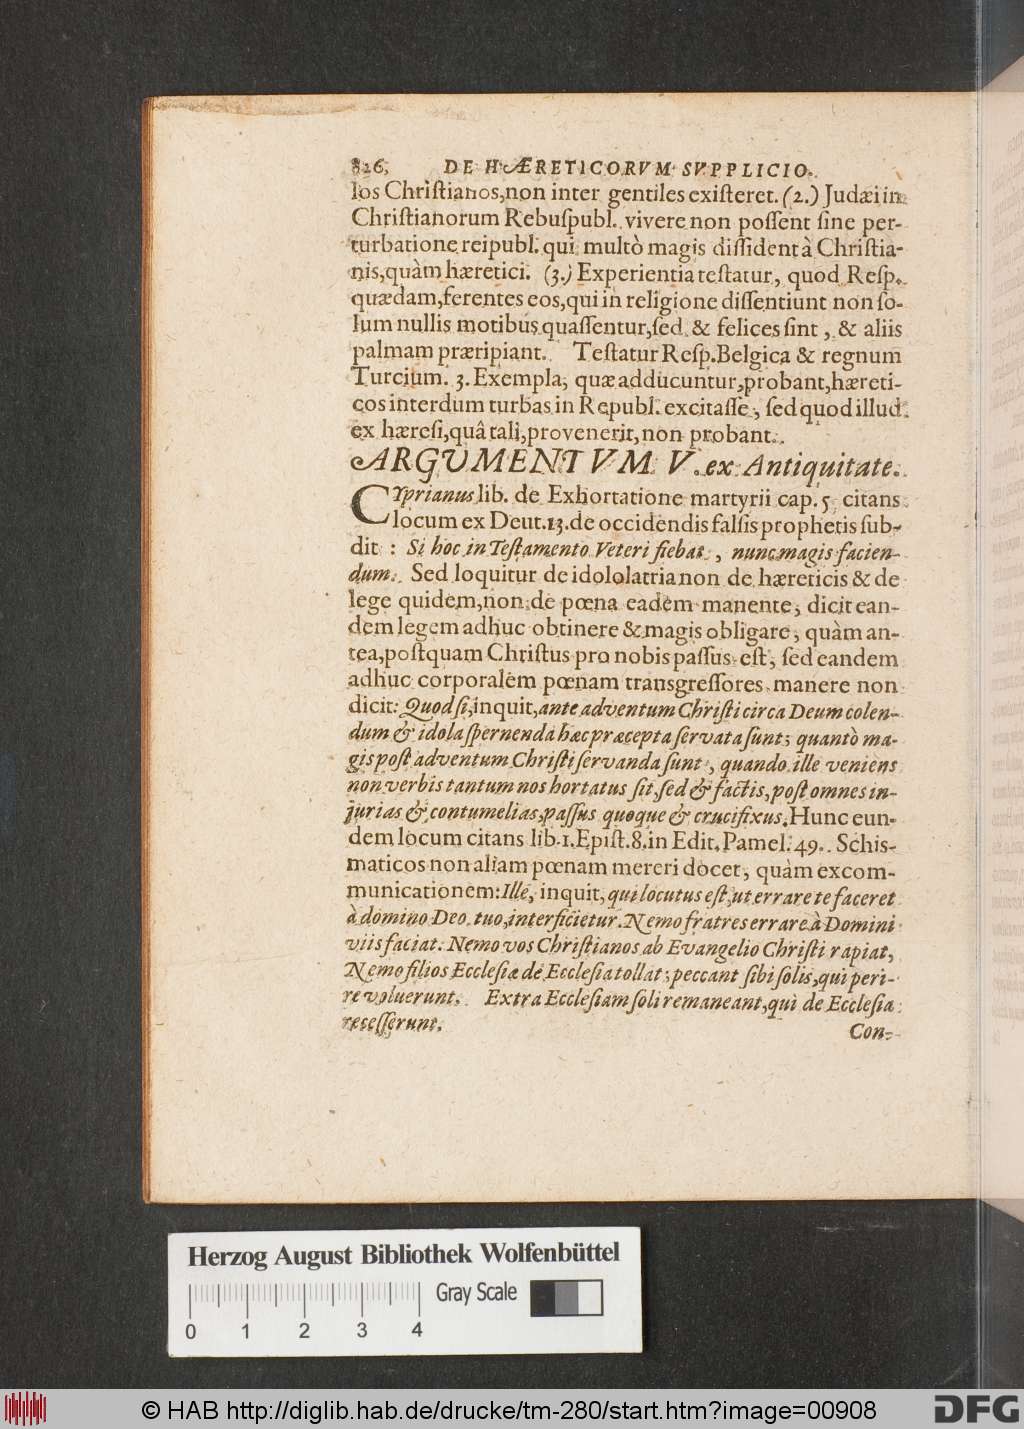 826, DE HÆRETICORVM SVPPLICIO.
los Chriſtianos,non inter gentiles exiſteret. (2.) Judæi in
Chriſtianorum Rebuſpubl. vivere non poſſent ſine per-
turbatione reipubl. qui multò magis diſſident à Chriſtia-
nis,quàm hæretici. (3.) Experientia teſtatur, quod Reſp.
quædam,ferentes eos,qui in religione diſſentiunt non ſo-
lum nullis motibus quaſſentur,ſed & felices ſint, & aliis
palmam præripiant. Teſtatur Reſp.Belgica & regnum
Turcium. 3. Exempla, quæ adducuntur,probant,hæreti-
cos interdum turbas in Republ. excitaſſe, ſed quod illud
ex hæreſi,quâ tali,provenerit,non probant.
ARGUMENTVM V. ex Antiquitate.
CYprianus lib. de Exhortatione martyrii cap. 5. citans
locum ex Deut.13.de occidendis falſis prophetis ſub-
dit : Si hoc in Teſtamento Veteri fiebat, nunc magis facien-
dum. Sed loquitur de idololatria non de hæreticis & de
lege quidem,non de pœna eadem manente, dicit ean-
dem legem adhuc obtinere & magis obligare, quàm an-
tea,poſtquam Chriſtus pro nobis paſſus eſt, ſed eandem
adhuc corporalem pœnam transgreſſores manere non
dicit: Quod ſi,inquit,ante adventum Chriſti circa Deum colen-
dum & idola ſpernenda hæc præcepta ſervata ſunt; quantò ma-
gis poſt adventum Chriſti ſervanda ſunt, quando ille veniens
non verbis tantum nos hortatus ſit,ſed & factis,poſt omnes in-
jurias & contumelias,paſſus quoque & crucifixus. Hunc eun-
dem locum citans lib.1.Epiſt.8.in Edit.Pamel. 49. Schis-
maticos non aliam pœnam mereri docet, quàm excom-
municationem: Ille, inquit, qui locutus eſt,ut errare te faceret
à domino Deo tuo,interficietur. Nemo fratres errare à Domini
viis faciat. Nemo vos Chriſtianos ab Evangelio Chriſti rapiat,
Nemo filios Eccleſiæ de Eccleſia tollat; peccant ſibi ſolis,qui peri-
re voluerunt. Extra Eccleſiam ſoli remaneant,qui de Eccleſia
receſſerunt.
Con-
Herzog August Bibliothek Wolfenbüttel
Gray Scale
0 1 2 3 4
© HAB http://diglib.hab.de/drucke/tm-280/start.htm?image=00908
DFG